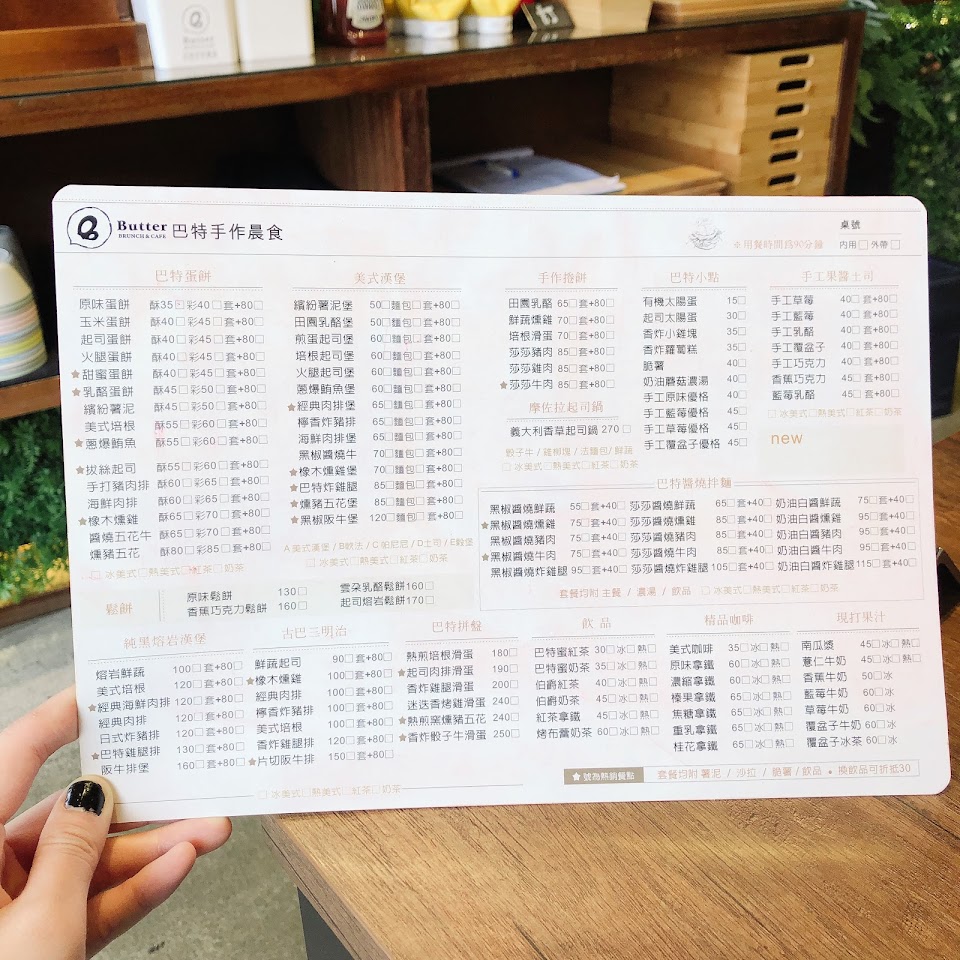 Butter
Butter
BRUNCH & CAFE
巴特手作晨食
※用餐時間為90分鐘
桌號
內用□ 外帶□
巴特蛋餅
原味蛋餅 酥35□彩40□套+80□
玉米蛋餅 酥40□彩45□套+80□
起司蛋餅 酥40□彩45□套+80□
火腿蛋餅 酥40□彩45□套+80□
★甜蜜蛋餅 酥40□彩45□套+80□
★乳酪蛋餅 酥45□彩50□套+80□
繽紛薯泥 酥45□彩50□套+80□
美式培根 酥55□彩60□套+80□
★蔥爆鮪魚 酥55□彩60□套+80□
★拔絲起司 酥55□彩60□套+80□
手打豬肉排 酥60□彩65□套+80□
海鮮肉排 酥60□彩65□套+80□
★橡木燻雞 酥65□彩70□套+80□
醬燒五花牛 酥65□彩70□套+80□
燻豬五花 酥80□彩85□套+80□
□冰美式□熱美式□紅茶□奶茶
美式漢堡
繽紛薯泥堡 50□麵包□套+80□
田園乳酪堡 50□麵包□套+80□
煎蛋起司堡 60□麵包□套+80□
培根起司堡 60□麵包□套+80□
火腿起司堡 60□麵包□套+80□
蔥爆鮪魚堡 60□麵包□套+80□
★經典肉排堡 65□麵包□套+80□
檸香炸豬排 65□麵包□套+80□
海鮮肉排堡 65□麵包□套+80□
黑椒醬燒牛 80□麵包□套+80□
★橡木燻雞堡 80□麵包□套+80□
★巴特炸雞腿 85□麵包□套+80□
★燻豬五花堡 85□麵包□套+80□
★黑椒阪牛堡 120□麵包□套+80□
A美式漢堡 / B軟法 / C帕尼尼 / D土司 / E穀堡
□冰美式□熱美式□紅茶□奶茶
手作捲餅
田園乳酪 65□套+80□
鮮蔬燻雞 70□套+80□
培根滑蛋 70□套+80□
莎莎豬肉 85□套+80□
莎莎雞肉 85□套+80□
★莎莎牛肉 85□套+80□
摩佐拉起司鍋
義大利香草起司鍋 270□
骰子牛 / 雞柳塊 / 法麵包 / 鮮蔬
□冰美式□熱美式□紅茶□奶茶
巴特小點
有機太陽蛋 15□
起司太陽蛋 30□
香炸小雞塊 35□
香炸蘿蔔糕 35□
脆薯 40□
奶油蘑菇濃湯 40□
手工原味優格 40□
手工藍莓優格 45□
手工草莓優格 45□
手工覆盆子優格 45□
手工果醬土司
手工草莓 40□套+80□
手工藍莓 40□套+80□
手工乳酪 40□套+80□
手工覆盆子 40□套+80□
手工巧克力 40□套+80□
香蕉巧克力 45□套+80□
藍莓乳酪 45□套+80□
□冰美式□熱美式□紅茶□奶茶
new
巴特醬燒拌麵
黑椒醬燒鮮蔬 55□套+40□ 莎莎醬燒鮮蔬 65□套+40□ 奶油白醬鮮蔬 75□套+40□
★黑椒醬燒燻雞 75□套+40□ 莎莎醬燒燻雞 85□套+40□ 奶油白醬燻雞 95□套+40□
黑椒醬燒豬肉 75□套+40□ 莎莎醬燒豬肉 85□套+40□ 奶油白醬豬肉 95□套+40□
★黑椒醬燒牛肉 75□套+40□ 莎莎醬燒牛肉 85□套+40□ 奶油白醬牛肉 95□套+40□
黑椒醬燒炸雞腿 95□套+40□ 莎莎醬燒炸雞腿 105□套+40□ 奶油白醬炸雞腿 115□套+40□
套餐均附 主餐 / 濃湯 / 飲品 □冰美式□熱美式□紅茶□奶茶
鬆餅
原味鬆餅 130□ 雲朵乳酪鬆餅160□
香蕉巧克力鬆餅 160□ 起司熔岩鬆餅170□
純黑熔岩漢堡
熔岩鮮蔬 100□套+80□
美式培根 120□套+80□
★經典海鮮肉排 120□套+80□
經典肉排 120□套+80□
日式炸豬排 120□套+80□
★巴特雞腿排 130□套+80□
阪牛排堡 160□套+80□
古巴三明治
鮮蔬起司 90□套+80□
★橡木燻雞 100□套+80□
經典肉排 100□套+80□
檸香炸豬排 100□套+80□
美式培根 100□套+80□
香炸雞腿排 120□套+80□
★片切阪牛排 150□套+80□
□冰美式□熱美式□紅茶□奶茶
巴特拼盤
熱煎培根滑蛋 180□
★起司肉排滑蛋 190□
香炸雞腿滑蛋 200□
迷迭香烤雞滑蛋 240□
★熱煎窯燻豬五花 240□
★香炸骰子牛滑蛋 290□
飲品
巴特蜜紅茶 30□冰□熱□
巴特蜜奶茶 35□冰□熱□
伯爵紅茶 40□冰□熱□
伯爵奶茶 45□冰□熱□
紅茶拿鐵 45□冰□熱□
烤布蕾奶茶 60□冰□熱□
精品咖啡
美式咖啡 35□冰□熱□
原味拿鐵 60□冰□熱□
濃縮拿鐵 60□冰□熱□
榛果拿鐵 65□冰□熱□
焦糖拿鐵 65□冰□熱□
重乳拿鐵 65□冰□熱□
桂花拿鐵 65□冰□熱□
現打果汁
南瓜漿 45□冰□熱□
薏仁牛奶 45□冰□熱□
香蕉牛奶 50□冰
藍莓牛奶 60□冰
草莓牛奶 60□冰
覆盆子牛奶 60□冰
覆盆子冰茶 60□冰
★號為熱銷餐點
套餐均附 薯泥 / 沙拉 / 脆薯 / 飲品 • 換飲品可折抵30